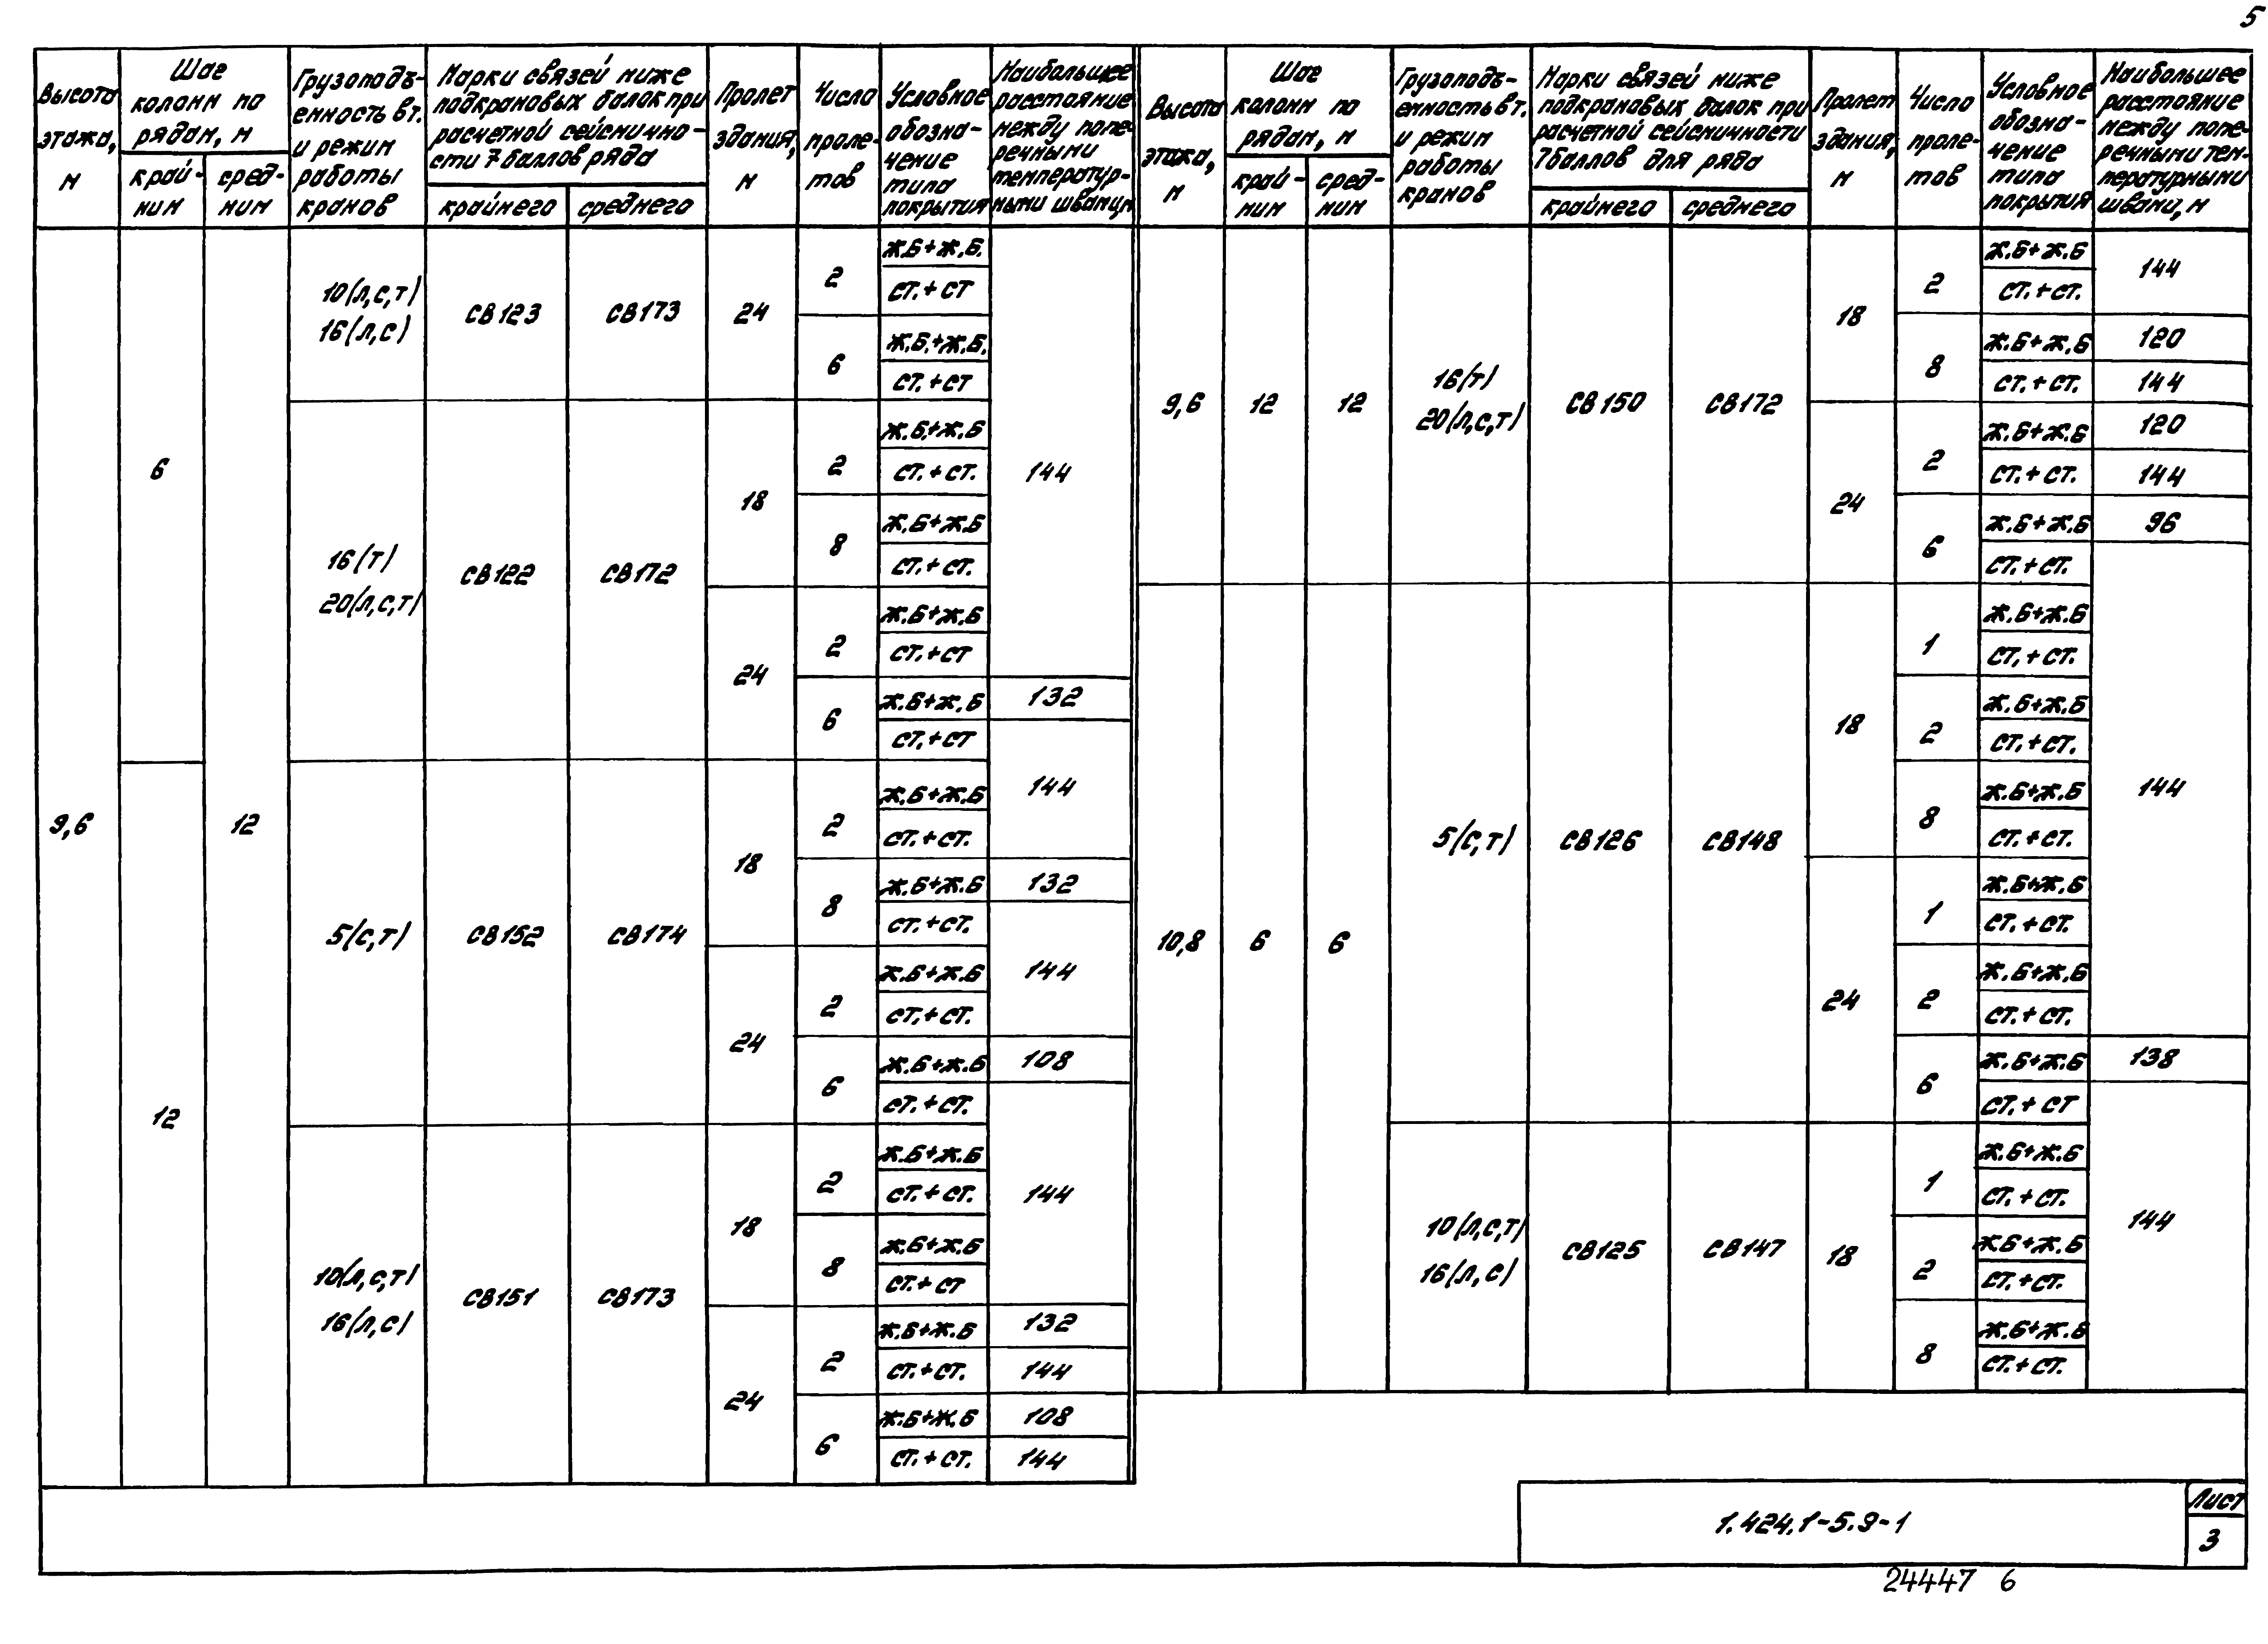 5
Высота этажа, м
Шаг колонн по рядам, м
край-ним
сред-ним
Грузоподъ-емность в т. и режим работы кранов
Марки связей ниже подкрановых балок при расчетной сейсмично-сти 7 баллов ряда
крайнего
среднего
Пролет здания, м
Число проле-тов
Условное обозна-чение типа покрытия
Наибольшее расстояние между попе-речными температур-ными швами, м
9,6
6
12
10(л,с,т)
16(л,с)
СВ123
СВ173
24
2
Ж.Б+Ж.Б.
СТ.+СТ
6
Ж.Б.+Ж.Б.
СТ.+СТ
144
16(т)
20(л,с,т)
СВ122
СВ172
18
2
Ж.Б.+Ж.Б
СТ.+СТ.
8
Ж.Б+Ж.Б
СТ.+СТ.
24
2
Ж.Б+Ж.Б
СТ.+СТ
6
Ж.Б+Ж.Б
132
СТ.+СТ
144
12
5(с,т)
СВ152
СВ174
18
2
Ж.Б+Ж.Б
СТ.+СТ.
8
Ж.Б+Ж.Б
132
СТ.+СТ.
144
24
2
Ж.Б+Ж.Б
СТ.+СТ.
6
Ж.Б+Ж.Б
108
СТ.+СТ.
144
10(л,с,т)
16(л,с)
СВ151
СВ173
18
2
Ж.Б+Ж.Б
СТ.+СТ.
8
Ж.Б+Ж.Б
СТ.+СТ
24
2
Ж.Б+Ж.Б
132
СТ.+СТ.
144
6
Ж.Б+Ж.Б
108
СТ.+СТ.
144
Высота этажа, м
Шаг колонн по рядам, м
край-ним
сред-ним
Грузоподъ-емность в т. и режим работы кранов
Марки связей ниже подкрановых балок при расчетной сейсмичности 7 баллов для ряда
крайнего
среднего
Пролет здания, м
Число проле-тов
Условное обозна-чение типа покрытия
Наибольшее расстояние между попе-речными тем-пературными швами, м
9,6
12
12
16(т)
20(л,с,т)
СВ150
СВ172
18
2
Ж.Б+Ж.Б
СТ.+СТ.
144
8
Ж.Б+Ж.Б
120
СТ.+СТ.
144
24
2
Ж.Б+Ж.Б
120
СТ.+СТ.
144
6
Ж.Б+Ж.Б
96
СТ.+СТ.
144
10,8
6
6
5(с,т)
СВ126
СВ148
18
1
Ж.Б+Ж.Б
СТ.+СТ.
2
Ж.Б+Ж.Б
СТ.+СТ.
8
Ж.Б+Ж.Б
СТ.+СТ.
24
1
Ж.Б+Ж.Б
СТ.+СТ.
2
Ж.Б+Ж.Б
СТ.+СТ.
6
Ж.Б+Ж.Б
138
СТ.+СТ
144
10(л,с,т)
16(л,с)
СВ125
СВ147
18
1
Ж.Б+Ж.Б
СТ.+СТ.
2
Ж.Б+Ж.Б
СТ.+СТ.
8
Ж.Б+Ж.Б
СТ.+СТ.
1.424.1-5.9-1
Лист
3
24447 6